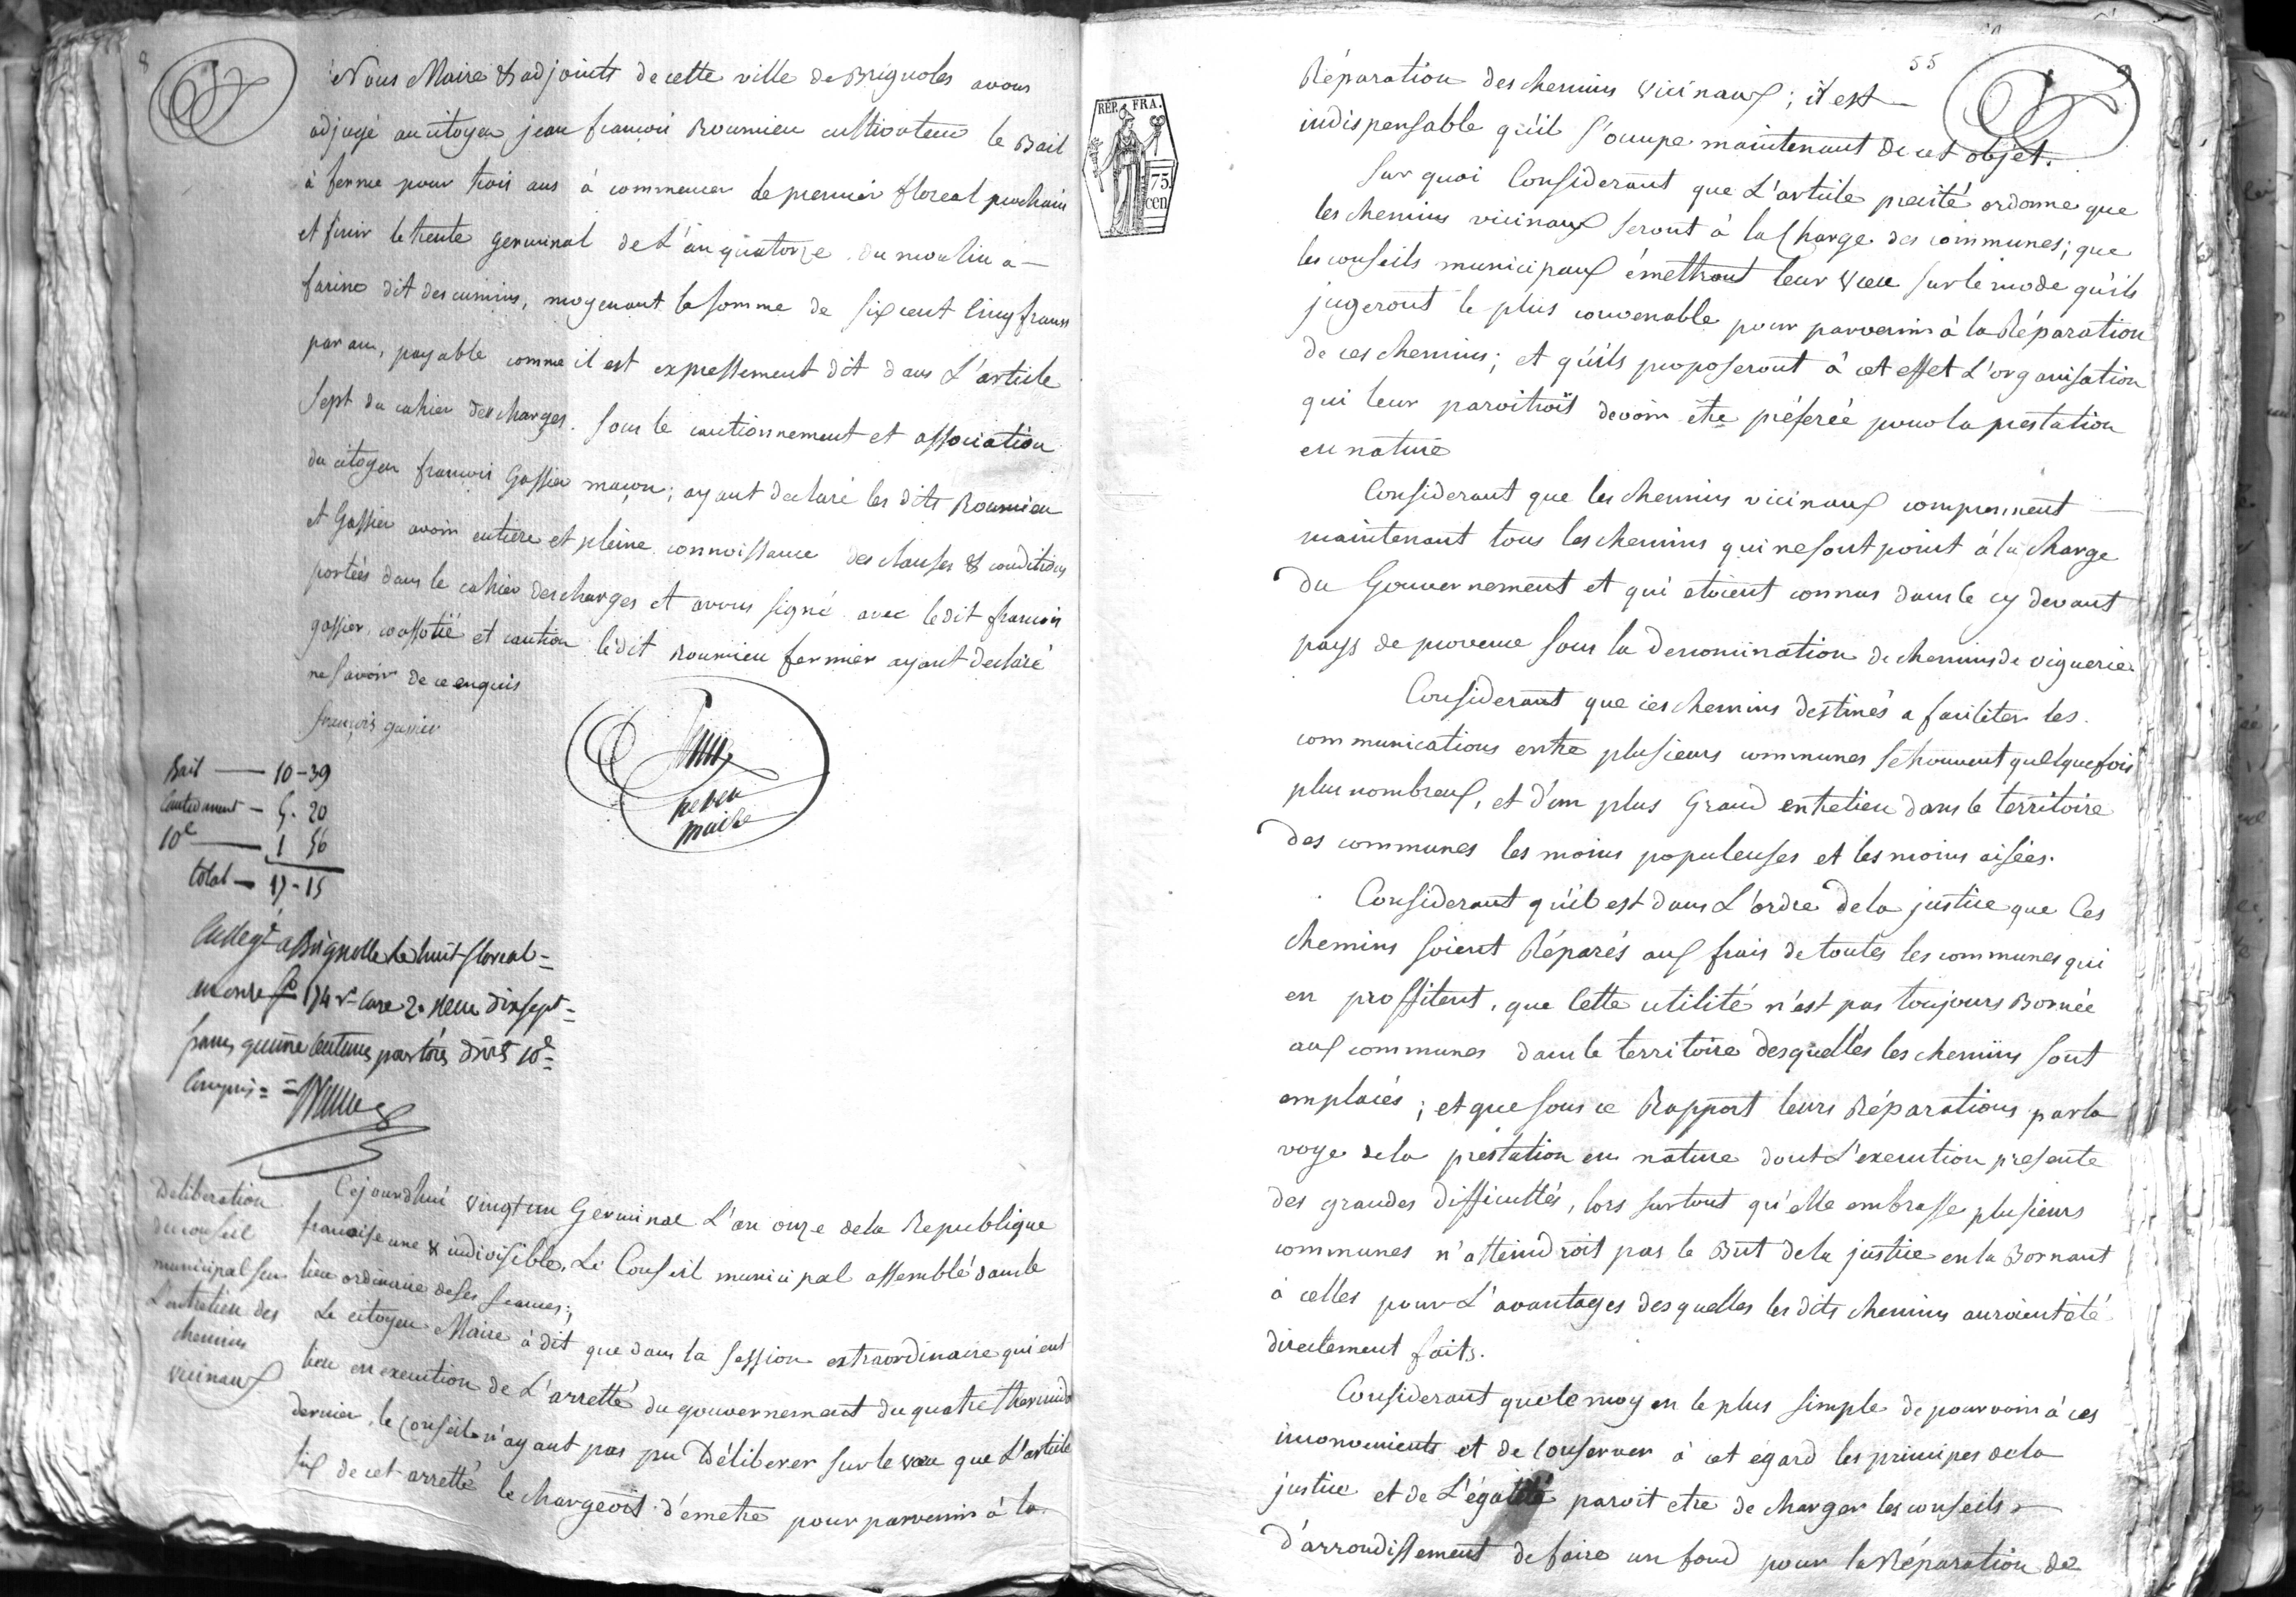 8
Nous Maire & adjoints de cette ville de Brignoles avons
adjugé au citoyen jean françois Roumieu cultivateur le Bail
à ferme pour trois ans à commencer le premier floreal prochain
et finir le trente germinal de L'an quatorze du moulin à
farine dit des cumins, moyenant la somme de six cent cinq francs
par an, payable comme il est expressement dit dans L'article
sept du cahier des charges. sous le cautionnement et association
du citoyen françois Gassier maçon; ayant declaré les dits Roumieu
et Gassier avoir entiere et pleine connoissance des clauses & conditions
portées dans le cahier des charges et avons signé avec le dit françois
gassier, coassotié et caution le dit Roumieu fermier ayant declaré
ne savoir de ce enquis
françois gassier
maire
Bail — 10-39
Cautionnement — 5. 20
10e — 1 56
total — 17-15
Enregé a Brignolle le huit floreal
an onze fo 174 vo Case 2. Reçu dix sept
francs quinze centimes pour tous droits 10e
Compris
Deliberation
du conseil
municipal sur
L'entretien des
chemins
vicinaux
Cejourdhui vingt un Germinal L'an onze de la Republique
française une & indivisible, Le Conseil municipal assemblé dans le
lieu ordinaire de ses seances;
Le citoyen Maire à dit que dans la session extraordinaire qui eut
lieu en execution de L'arretté du gouvernement du quatre thermidor
dernier, le Conseil n'ayant pas pu Déliberer sur le vœu que L'article
six de cet arretté le chargeoit d'emetre pour parvenir à la
55
RÉP. FRA.
75
cen
Réparation des chemins vicinaux; il est
indispensable qu'il s'occupe maintenant de cet objet.
Sur quoi Considerant que L'article precité ordonne que
les chemins vicinaux seront à la Charge des communes; que
les conseils municipaux émettront leur vœu sur le mode qu'ils
jugeront le plus convenable pour parvenir à la Réparation
de ces chemins; et qu'ils proposeront à cet effet L'organisation
qui leur paroitroit devoir être préferée pour la prestation
en nature
Considerant que les chemins vicinaux comprennent
maintenant tous les chemins qui ne sont point à la charge
du Gouvernement et qui etoient connus dans le cy devant
pays de provence sous la denomination de chemins de viguerie
Considerant que ces chemins destinés a faciliter les
communications entre plusieurs communes se trouvent quelquefois
plus nombreux, et d'un plus Grand entretien dans le territoire
des communes les moins populeuses et les moins aisées.
Considerant qu'il est dans L'ordre de la justice que Ces
chemins soient Réparés aux frais de toutes les communes qui
en proffitent, que Cette utilité n'est pas toujours Bornée
aux communes dans le territoire desquelles les chemins sont
emplacés; et que sous ce Rapport leurs Réparations par la
voye de la prestation en nature dont L'execution presente
des grandes difficultés, lors surtout qu'elle embrasse plusieurs
communes n'atteindroit pas le But de la justice en la Bornant
à celles pour L'avantages desquelles les dits chemins auroient été
directement faits.
Considerant que le moyen le plus simple de pourvoir à ces
inconvenients et de Conserver à cet égard les principes de la
justice et de L'égalité paroit etre de charger les conseils
d'arrondissement de faire un fond pour la Réparation de